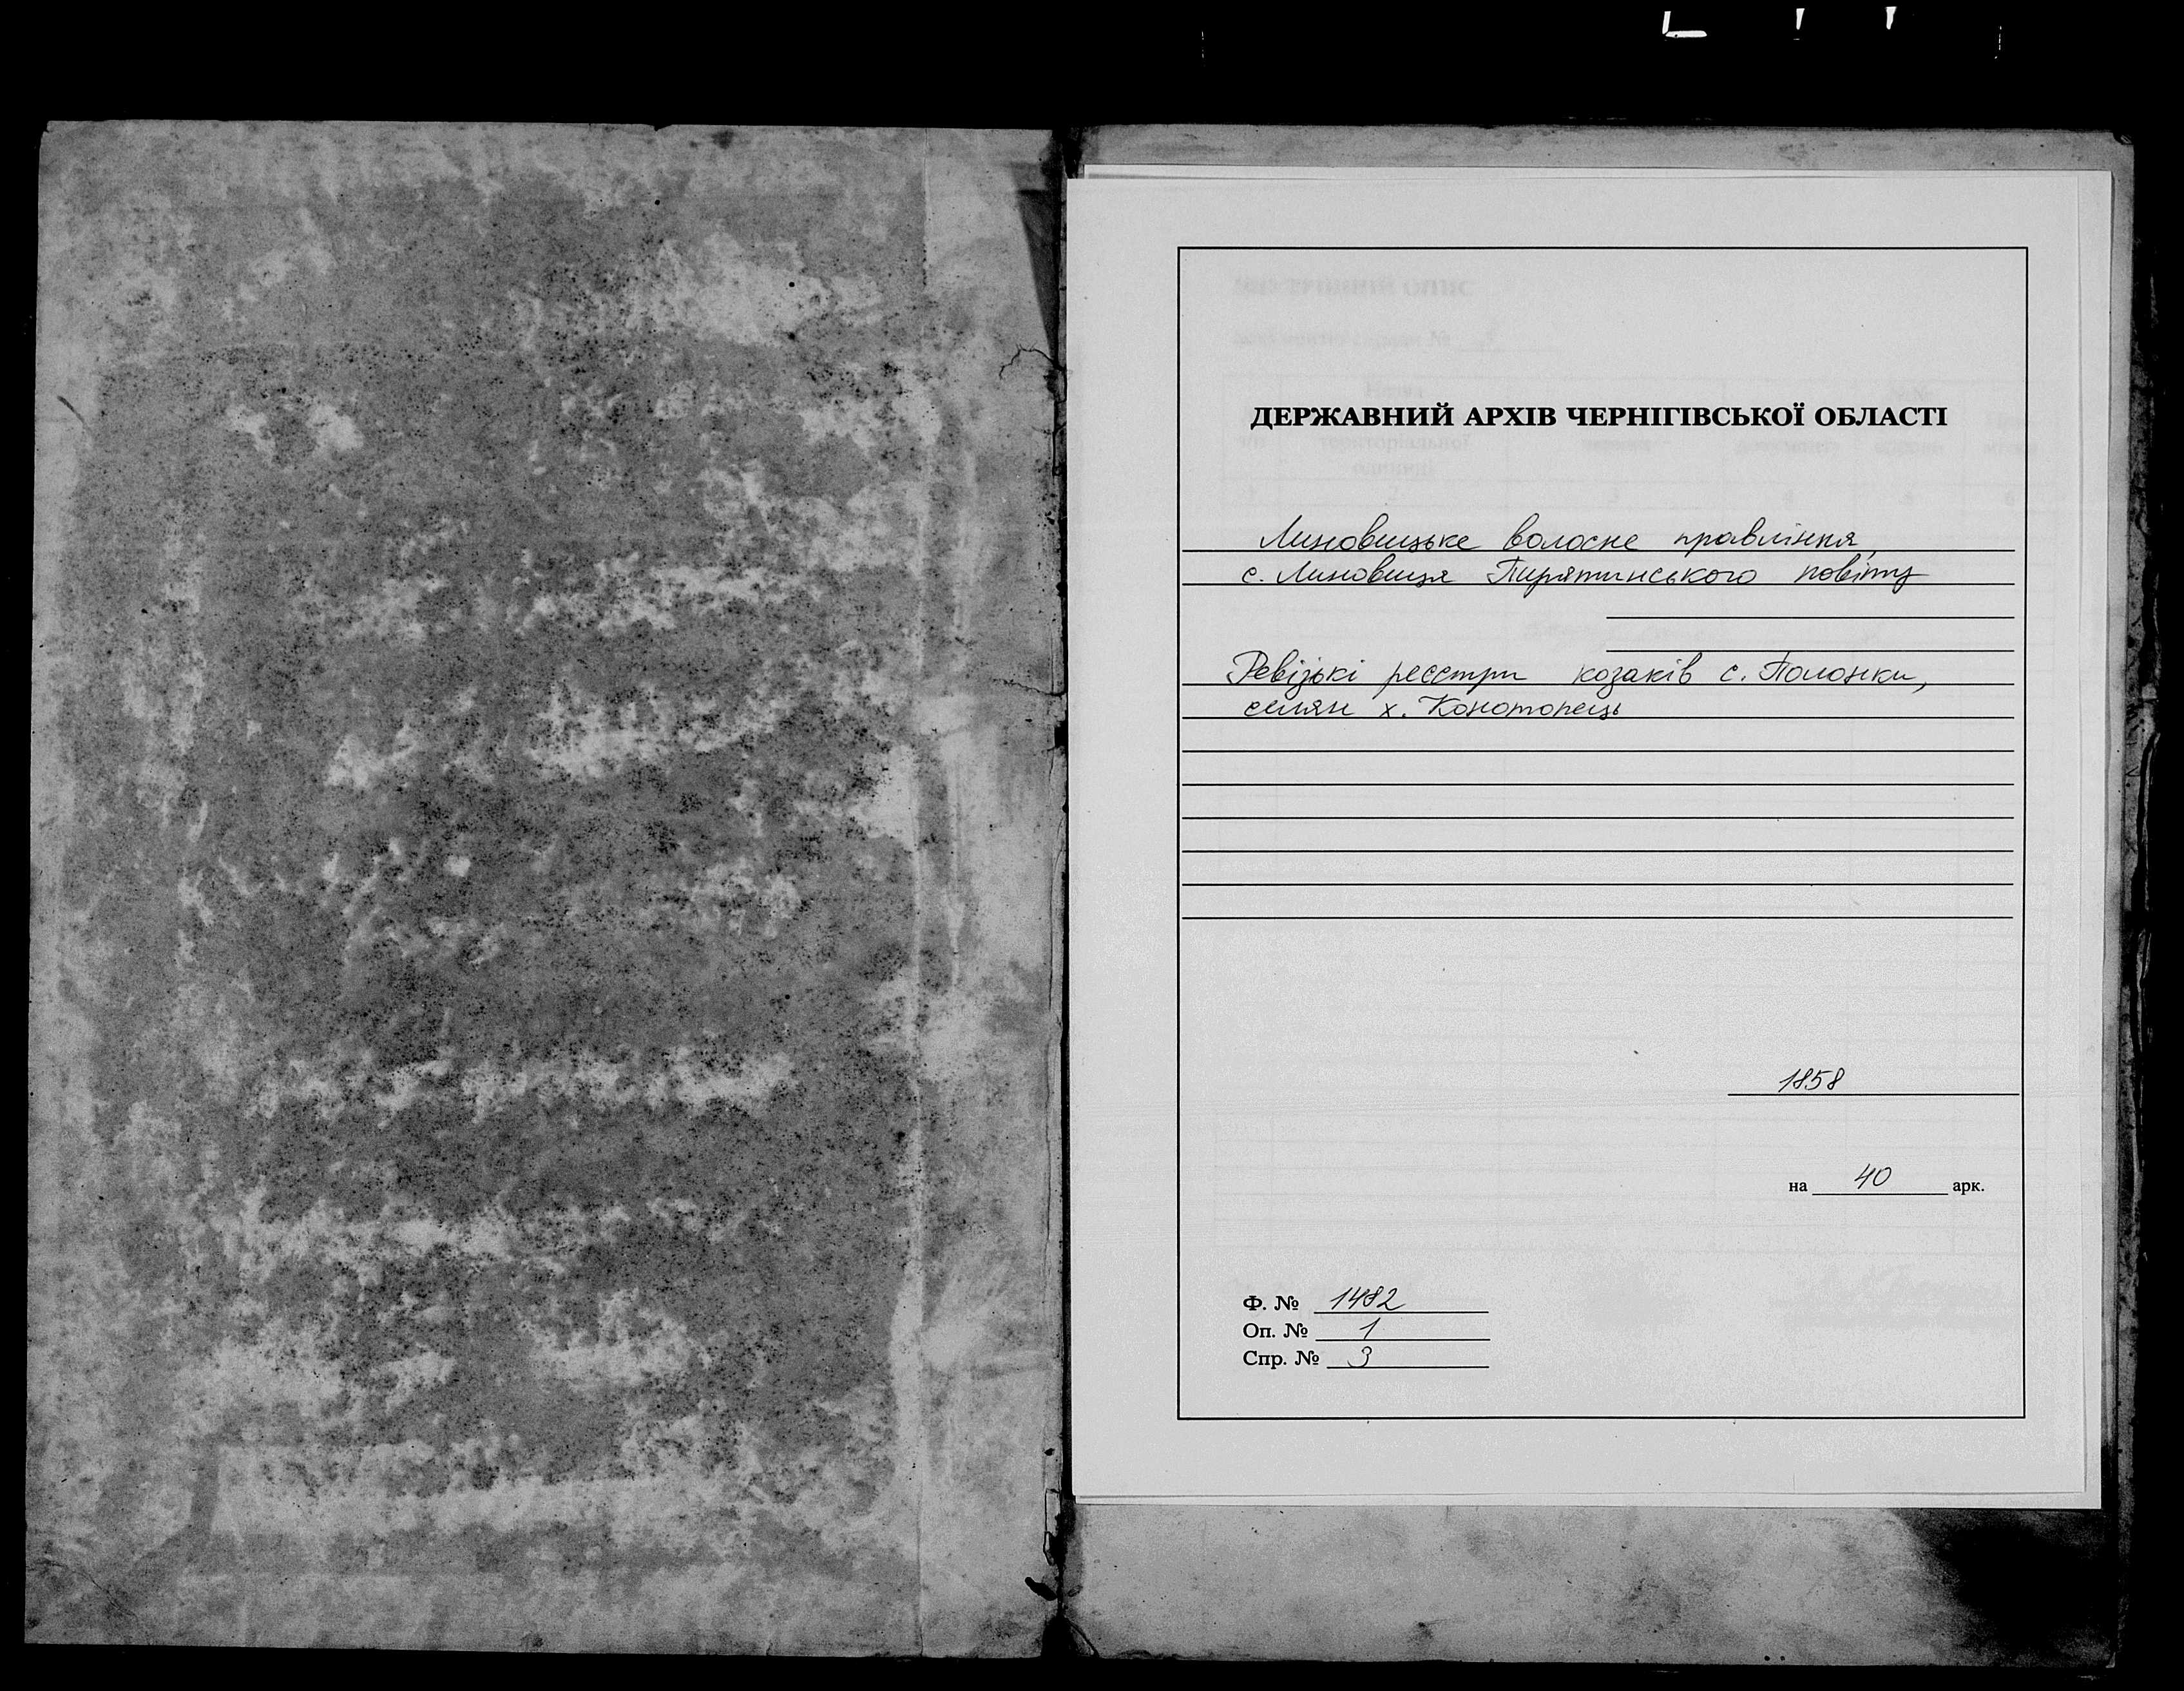 ДЕРЖАВНИЙ АРХІВ ЧЕРНІГІВСЬКОЇ ОБЛАСТІ
Линовицьке волосне правління,
с. Линовиця Пирятинського повіту
Ревізькі реєстри козаків с. Полонки,
селян х. Конотопець
1858
на 40 арк.
Ф. № 1482
Оп. № 1
Спр. № 3